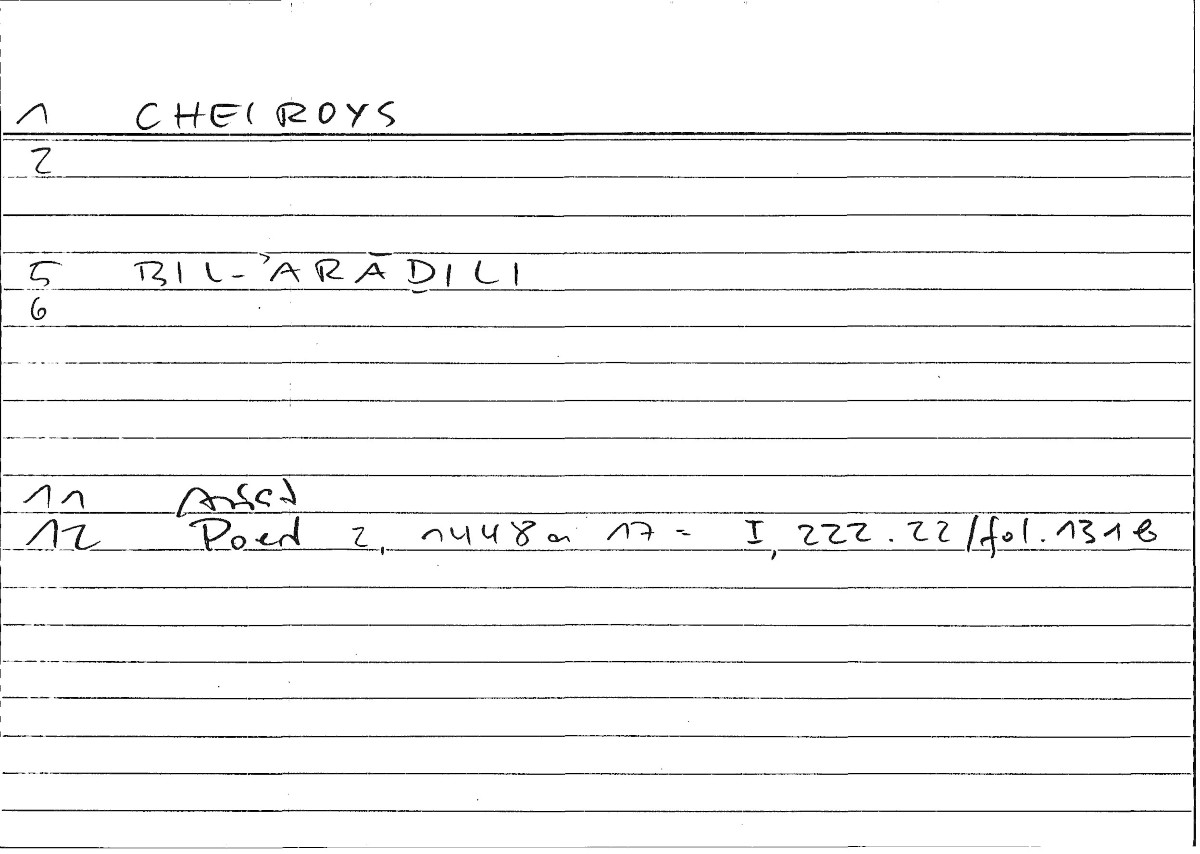 1 CHEIROYS
2
5 BIL-ʾARĀḎILI
6
11
12 Poet 2, 1448a 17 = I, 222.22/fol.131b